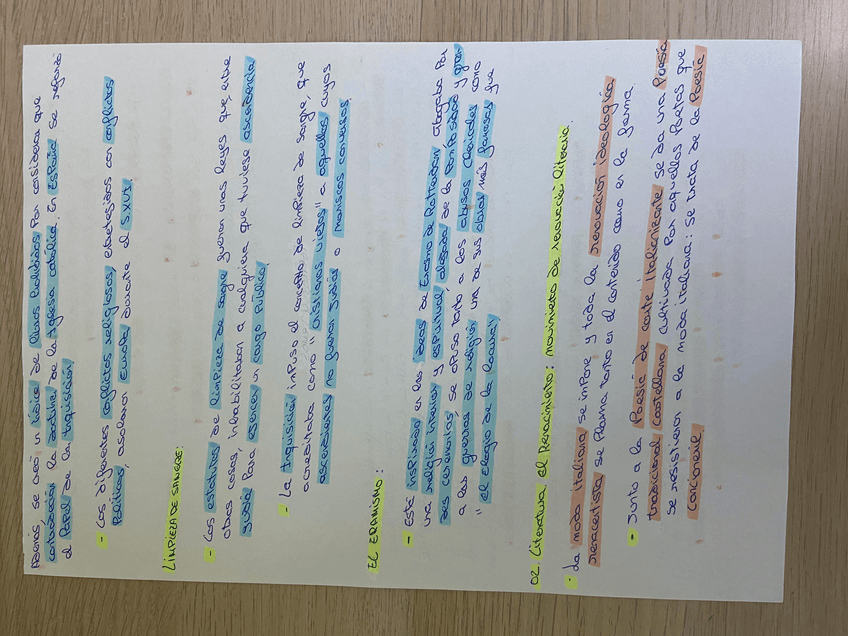 Además, se creó un índice de libros prohibidos por considerar que
contradecían la doctrina de la Iglesia católica. En España se reforzó
el papel de la Inquisición.
- Los diferentes conflictos religiosos, entretejidos con conflictos
políticos, asolaron Europa durante el S.XVI.
LIMPIEZA DE SANGRE:
- Los estatutos de limpieza de sangre fueron unas leyes que, entre
otras cosas, inhabilitaban a cualquiera que tuviese ascendencia
judía para ejercer un cargo público.
- La Inquisición impuso el concepto de limpieza de sangre, que
acreditaba como "cristianos viejos" a aquellos cuyos
ascendientes no fueran judíos o moriscos conversos.
EL ERAMISMO:
- Está inspirado en las ideas de Erasmo de Rotterdam abogaba por
una religión interior y espiritual, alejada de la pompa vacía y gran-
des ceremonias, se opuso tanto a los abusos clericales como
a las guerras de religión una de sus obras más famosas fue
"el Elogio de la locura".
02. Literatura el Renacimiento: movimiento de renovación literaria.
- La moda italiana se impone y toda la renovación ideológica
renacentista se plasma tanto en el contenido como en la forma.
- Junto a la Poesía de corte italianizante se da una Poesía
tradicional castellana cultivada por aquellos poetas que
se resistieron a la moda italiana: se trata de la Poesía
cancioneril.